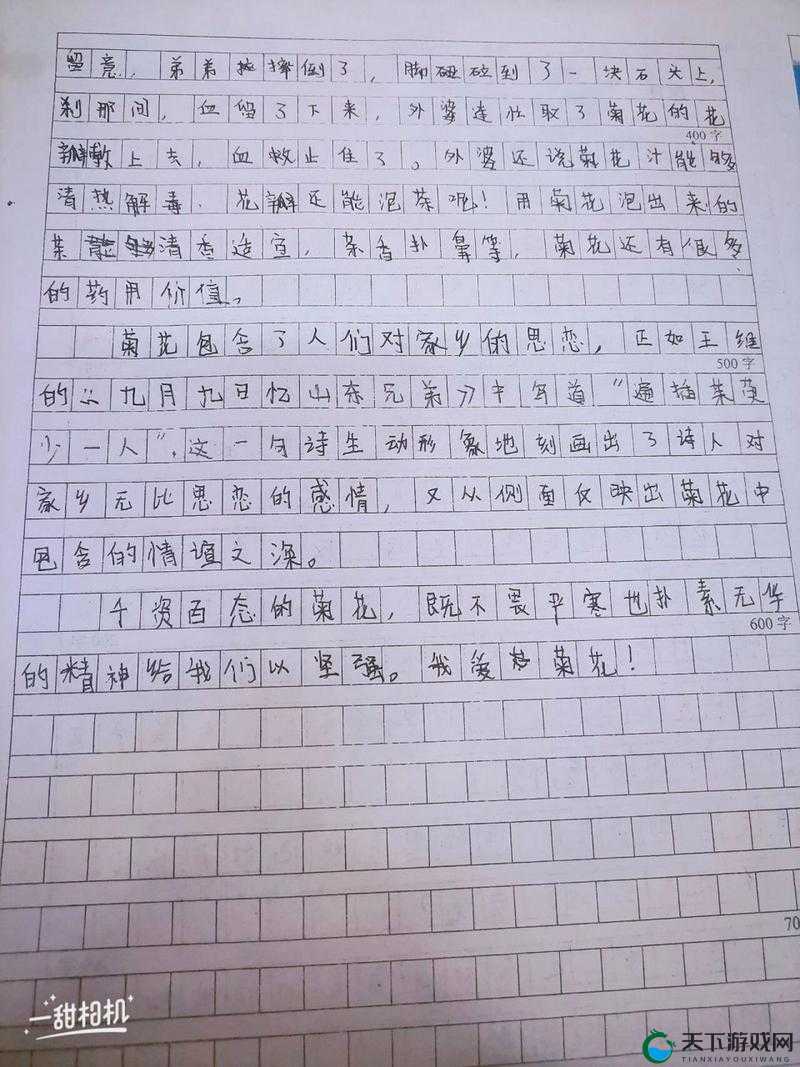 留意，弟弟摔倒了，脚砸到了一块石头上，
刹那间，血留了下来，外婆连忙取了菊花的花
400字
瓣敷上去，血救止住了。外婆还说菊花汁能够
清热解毒．花瓣还能泡茶呢！用菊花泡出来的
茶清香造宣，茶香扑鼻等，菊花还有很多
的药用价值。
菊花包含了人们对家乡的思恋，正如王维
500字
的《九月九日忆山东兄弟》中写道"遍插茱萸
少一人"．这一句诗生动形象地刻画出了诗人对
家乡无比思恋的感情，又从侧面仅映出菊花中
包含的情谊之深。
千资百态的菊花，既不畏严寒也扑素无华
600字
的精神给我们以坚强。我爱菊花！
70
一甜相机
天下游戏网
TIANXIAYOUXIWANG